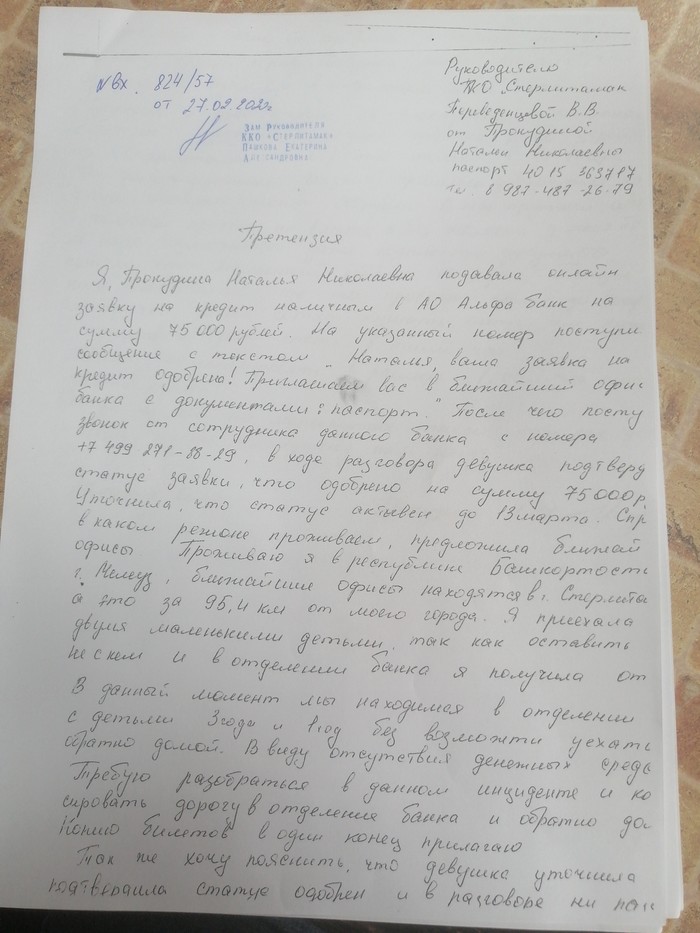 №Вх. 824/57
от 27.02.2022
Зам Руководителя
ККО «Стерлитамак»
Пашкова Екатерина
Александровна
Руководителю
ККО Стерлитамак
Переведенцевой В.В.
от Прокудиной
Натальи Николаевны
паспорт 4015 363717
тел. 8 987-487-26-79
Претензия
Я, Прокудина Наталья Николаевна подавала онлайн
заявку на кредит наличным в АО Альфа банк на
сумму 75 000 рублей. На указанный номер поступи
сообщение с текстом "Наталья, ваша заявка на
кредит одобрена! Приглашаем вас в ближайший офис
банка с документами: паспорт." После чего посту
звонок от сотрудника данного банка с номера
+7 499 271-88-29, в ходе разговора девушка подтверд
статус заявки, что одобрено на сумму 75000р.
Уточнила, что статус активен до 13 марта. Спр
в каком регионе проживаем, предложила ближай
офисы Проживаю я в республике Башкортост
г. Мелеуз, ближайшие офисы находятся в г. Стерлита
а это за 95,4 км от моего города. Я приехала
двумя маленькими детьми, так как оставить
не с кем и в отделении банка я получила от
В данный момент мы находимся в отделении
с детьми 3 года и 1 год без возможти уехать
обратно домой. В виду отсутствия денежных средс
Требую разобраться в данном инциденте и ко
сировать дорогу в отделение банка и обратно до
Копию билетов в один конец прилагаю
Так же хочу пояснить, что девушка уточнила
подтвердила статус одобрен и в разговоре ни